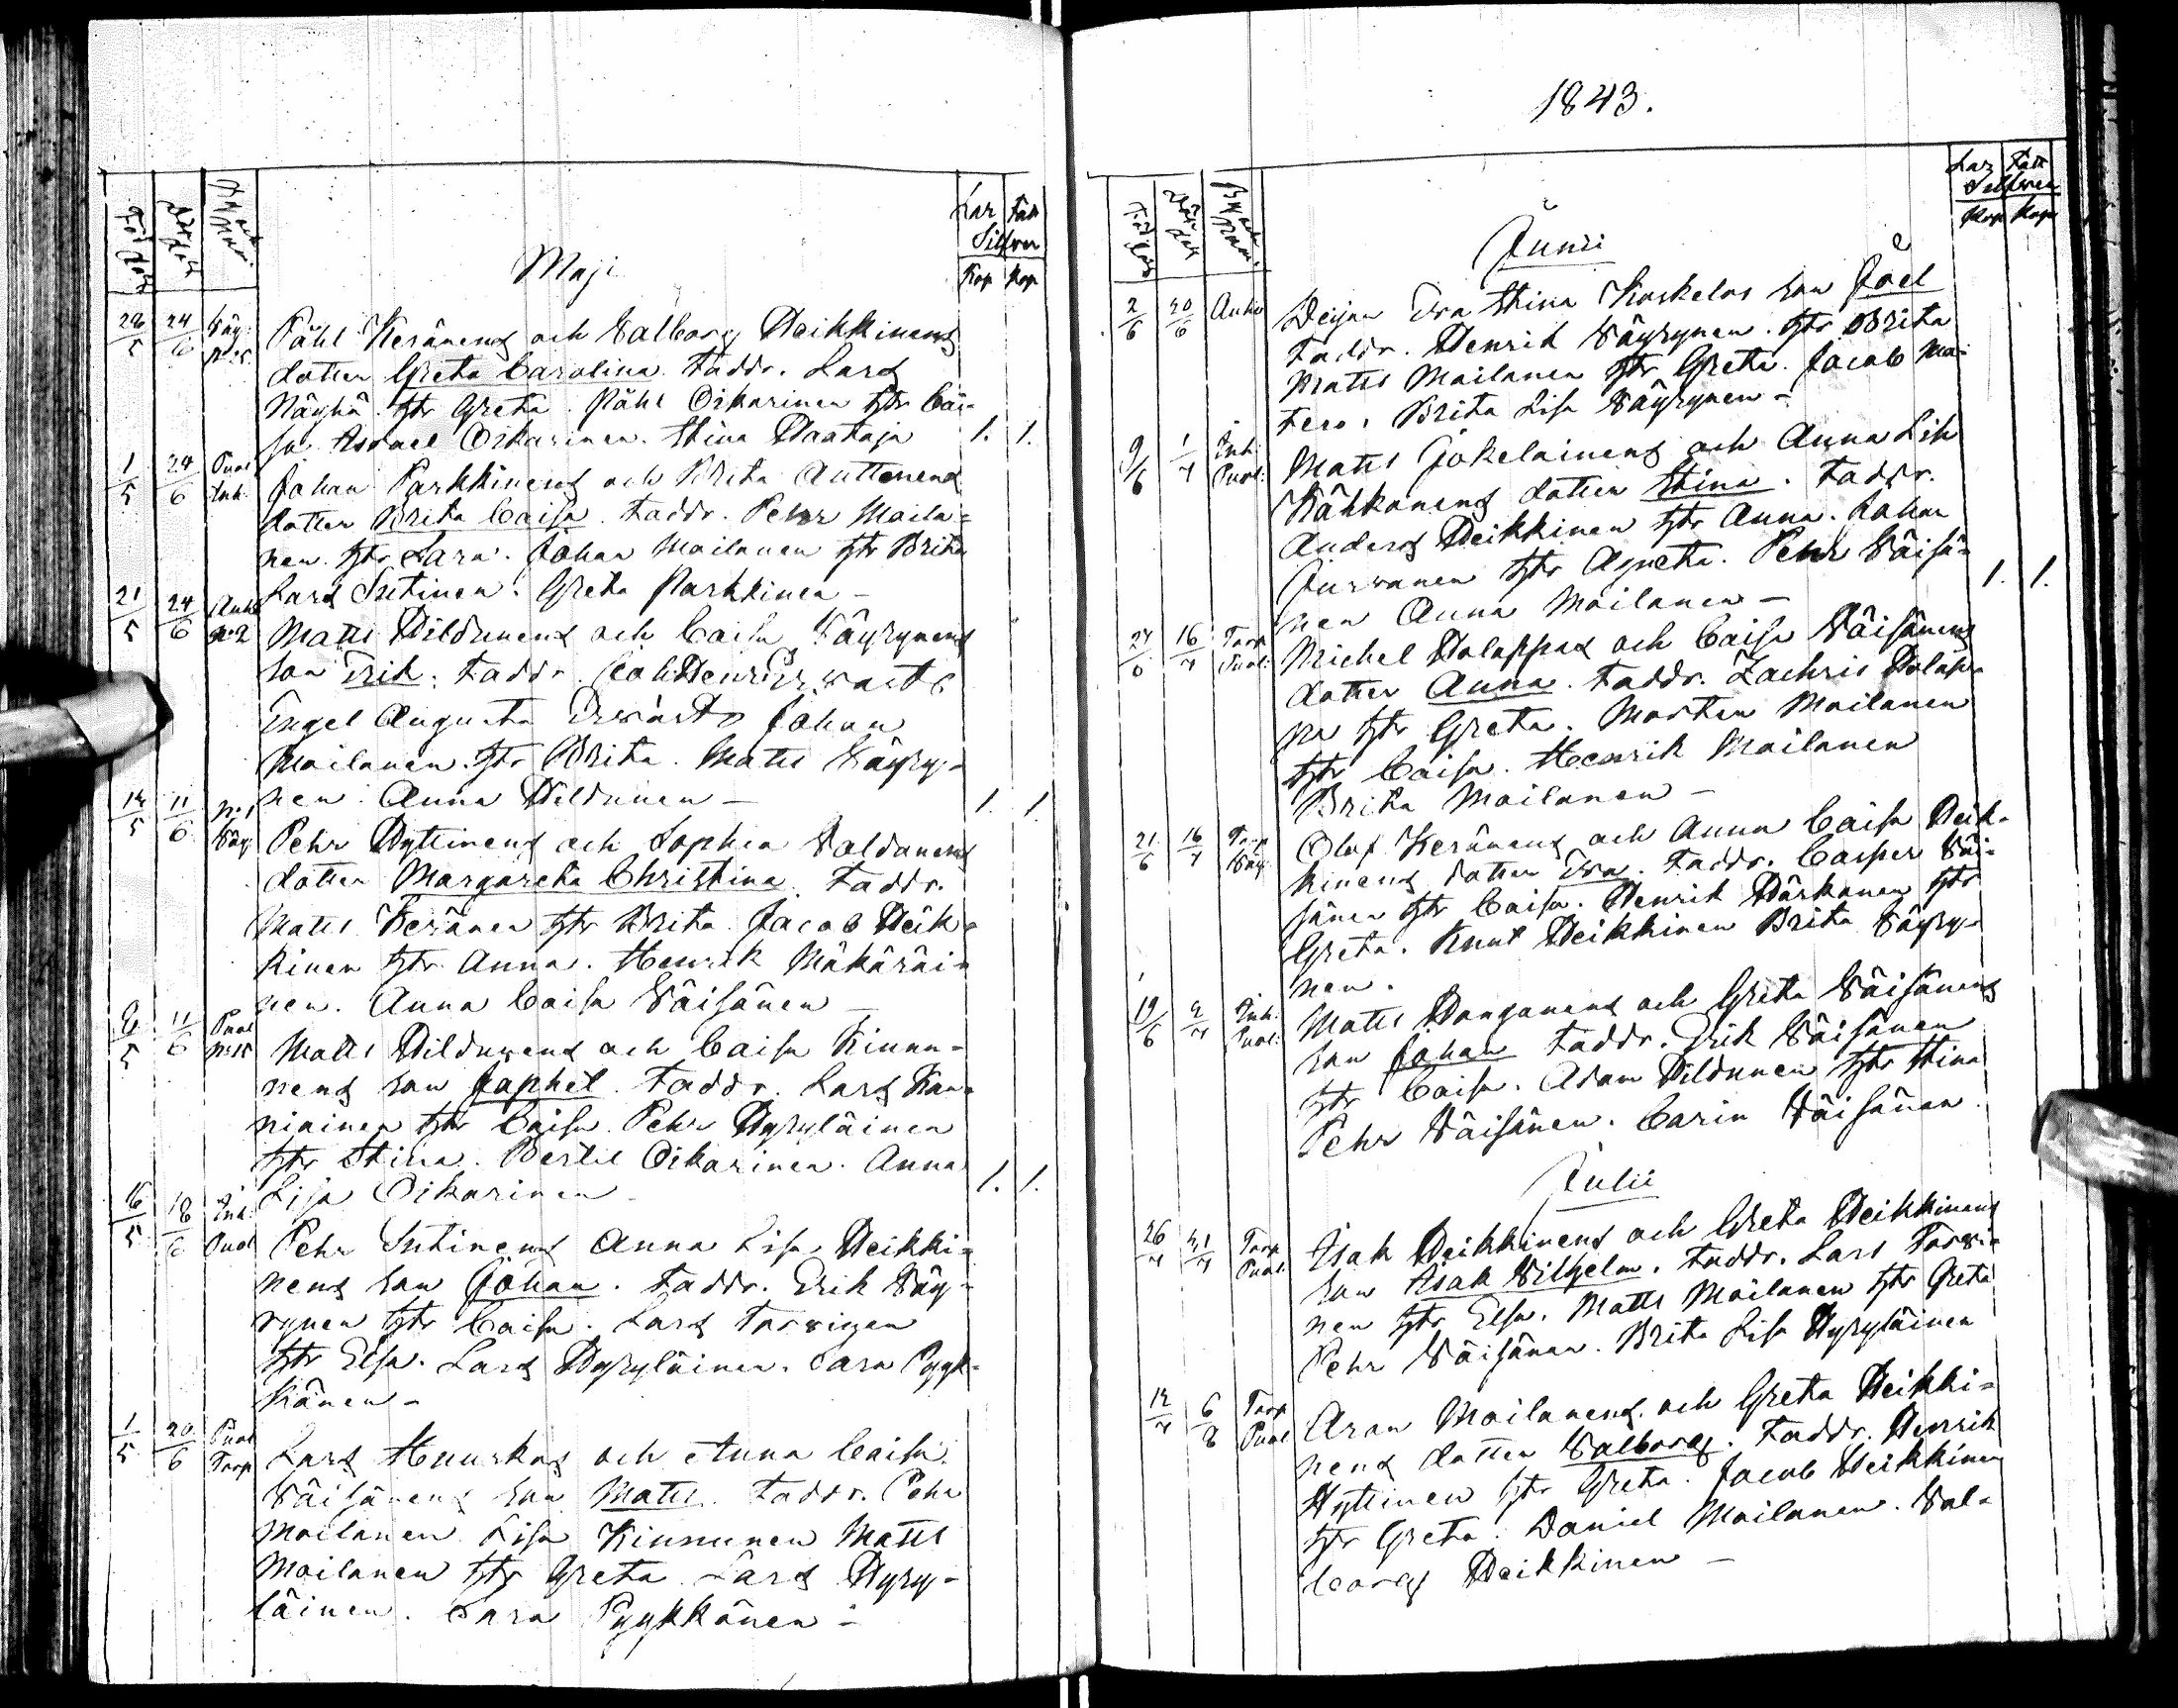 Maji
Lax Fatt
Silfver
Kop Kop
28/5 24/6 Väy: Påhl Keränens och Valborg Heikkinens
dotter Greta Carolina. Faddr. Lars
Näyhä. hstr Greta. Påhl Oikarinen hstr Cai-
sa. Oikarinen. Stina Haataja 1. 1.
1/5 24/6 Puol Inh. Johan Parkkinens och Brita Auttonens
dotter Brita Caisa. Faddr. Pehr Moila-
nen. hstr Sara. Johan Moilanen hstr Brita
Lars Sutinen. Greta Parkkinen –
21/5 24/6 No 2 Matts Hildunens och Caisa Väyrynens
son Erik. Faddr.
Engel Augusta Johan
Moilanen. hstr Brita. Matts Väyry-
nen. Anna Hildunen – 1. 1.
14/5 11/6 No 1 Väy: Pehr Hyttinens och Sophia Valdanens
dotter Margareta Christina. Faddr.
Matts Keränen hstr Brita. Jacob Heik-
kinen hstr Anna. Henrik Mäkäräi-
nen. Anna Caisa Väisänen –
8/5 11/6 Puol No 15 Matts Hildunens och Caisa Kinnu-
nens son Japhet. Faddr. Lars Kan-
niainen hstr Caisa. Pehr Hyryläinen
hstr Stina. Bertil Oikarinen. Anna
Lisa Oikarinen 1. 1.
16/5 18/6 Inh. Puol Pehr Sutinens Anna Lisa Heikki-
nens son Johan. Faddr. Erik Väy-
rynen hstr Caisa. Lars Torvinen
hstr Elsa. Lars Hyryläinen. Sara Pyyk-
känen –
1/5 20/6 Puol Torp Lars och Anna Caisa
Väisänens son Matts. Faddr. Pehr
Moilanen Lisa Kinnunen Matts
Moilanen hstr Greta. Lars Hyry-
läinen. Sara Pyykkänen –
1843.
Lax Fatt
Silfver
Kop Kop
Junii
2/6 20/6 Deijan Eva Stina Koskelos son Joel
Faddr. Henrik Väyrynen. hstr Brita
Matts Moilanen hstr Greta. Jacob Ma-
tero. Brita Lisa Väyrynen –
9/6 1/7 Inh. Puol: Matts Jokelainens och Anna Lisa
Kähkönens dotter Stina. Faddr.
Anders Heikkinen hstr Anna. Johan
Jurvanen hstr Agneta. Pehr Väisä-
nen Anna Moilanen – 1. 1.
24/6 16/7 Torp Puol: Michel Holappas och Caisa Väisänens
dotter Anna. Faddr. Zachris Holap-
pa hstr Greta. Morten Moilanen
hstr Caisa. Henrik Moilanen
Brita Moilanen –
21/6 16/7 Torp Väy: Olof Keränens och Anna Caisa Heik-
kinens dotter Eva. Faddr. Casper Väi-
sänen hstr Caisa. Henrik Härkönen hstr
Greta. Knut Heikkinen Brita Väyry-
nen.
19/6 2/7 Inh. Puol: Matts Honganens och Greta Väisänens
son Johan Faddr. Erik Väisänen
hstr Caisa. Adam Hildunen hstr Stina
Pehr Väisänen. Carin Väisänen.
Julii
26/7 31/7 Torp Puol: Isak Heikkinens och Greta Heikkinens
son Isak Vilhelm. Faddr. Lars Torvi-
nen hstr Elsa. Matts Moilanen hstr Greta
Pehr Väisänen. Brita Lisa Hyryläinen
12/7 6/8 Torp Puol Aron Moilanens och Greta Heikki-
nens dotter Valborg. Faddr. Henrik
Hyttinen hstr Greta. Jacob Heikkinen
hstr Greta. Daniel Moilanen. Val-
borg Heikkinen –